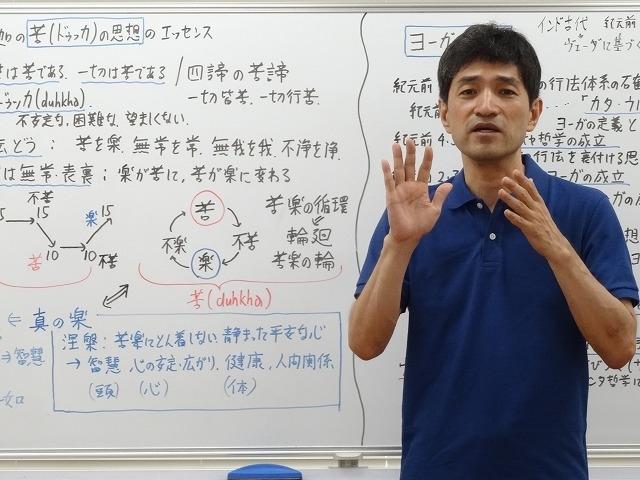 の 苦(ドゥッカ)の思想 の エッセンス
は苦である. 一切は苦である / 四諦の苦諦
ドゥッカ(duhkha) 一切皆苦. 一切行苦
不安定な, 困難な, 望ましくない
どう : 苦を楽. 無常を常. 無我を我. 不浄を浄.
は無常. 表裏 : 楽が苦に, 苦が楽に変わる
15 不苦 15 楽 15
10 10 不苦
苦
苦
不楽 不苦
楽
苦楽の循環
輪廻
苦楽の輪
苦(duhkha)
⇐ 真の楽
→ 智慧
涅槃 : 苦楽にとん着しない 静まった平安な心
→ 智慧 心の安定・広がり. 健康. 人間関係
(頭) (心) (体)
ヨーガの
インド古代 紀元前
ヴェーダに基づく
紀元前 の行法体系の石窟
紀元前 ・・・・「カタ・ウ
ヨーガの定義と
紀元前 4. や哲学の成立
行法を裏付ける思
2. ヨーガの成立